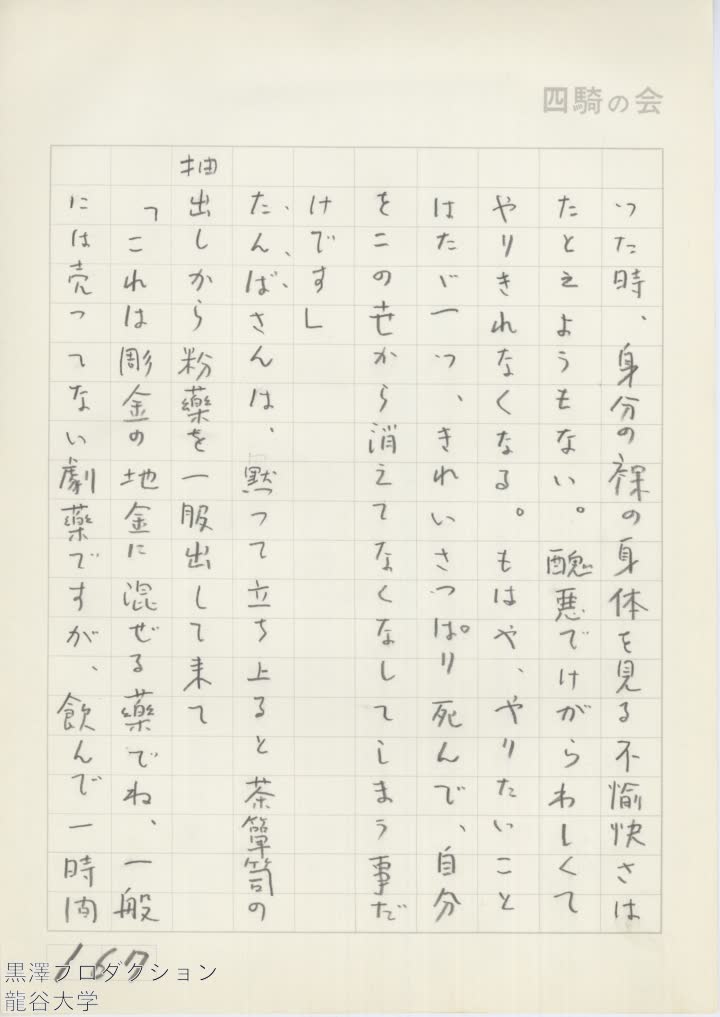 四騎の会
った時、身分の裸の身体を見る不愉快さは
たとえようもない。醜悪でけがらわしくて
やりきれなくなる。もはや、やりたいこと
はたゞ一つ、きれいさっぱり死んで、自分
をこの世から消えてなくなしてしまう事だ
けです」
たんばさんは、黙って立ち上ると茶簞笥の
抽出しから粉藥を一服出して来て
「これは彫金の地金に混ぜる藥でね、一般
には売ってない劇薬ですが、飲んで一時間
167
黒澤プロダクション
龍谷大学